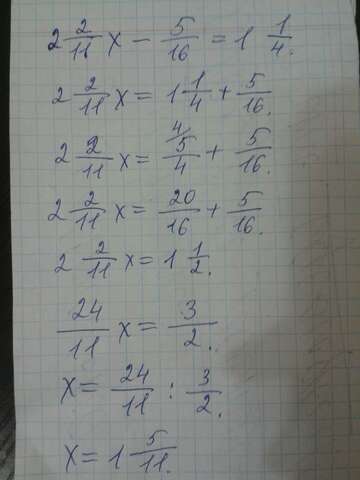 2 2/11 x - 5/16 = 1 1/4.
2 2/11 x = 1 1/4 + 5/16.
2 2/11 x = 4/ 5/4 + 5/16.
2 2/11 x = 20/16 + 5/16.
2 2/11 x = 1 1/2.
24/11 x = 3/2.
x = 24/11 : 3/2.
x = 1 5/11.